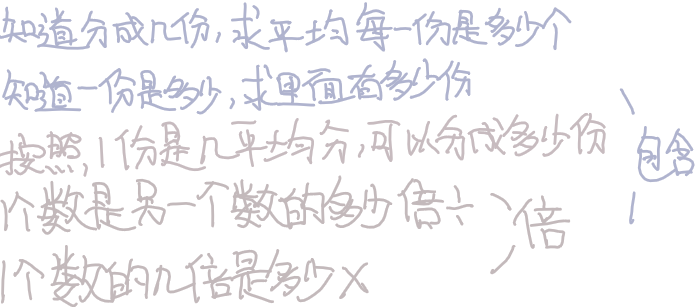 知道分成几份,求平均每一份是多少个
知道一份是多少,求里面有多少份
按照,1份是几平均分,可以分成多少份
包含
1个数是另一个数的多少倍÷
倍
1个数的几倍是多少×